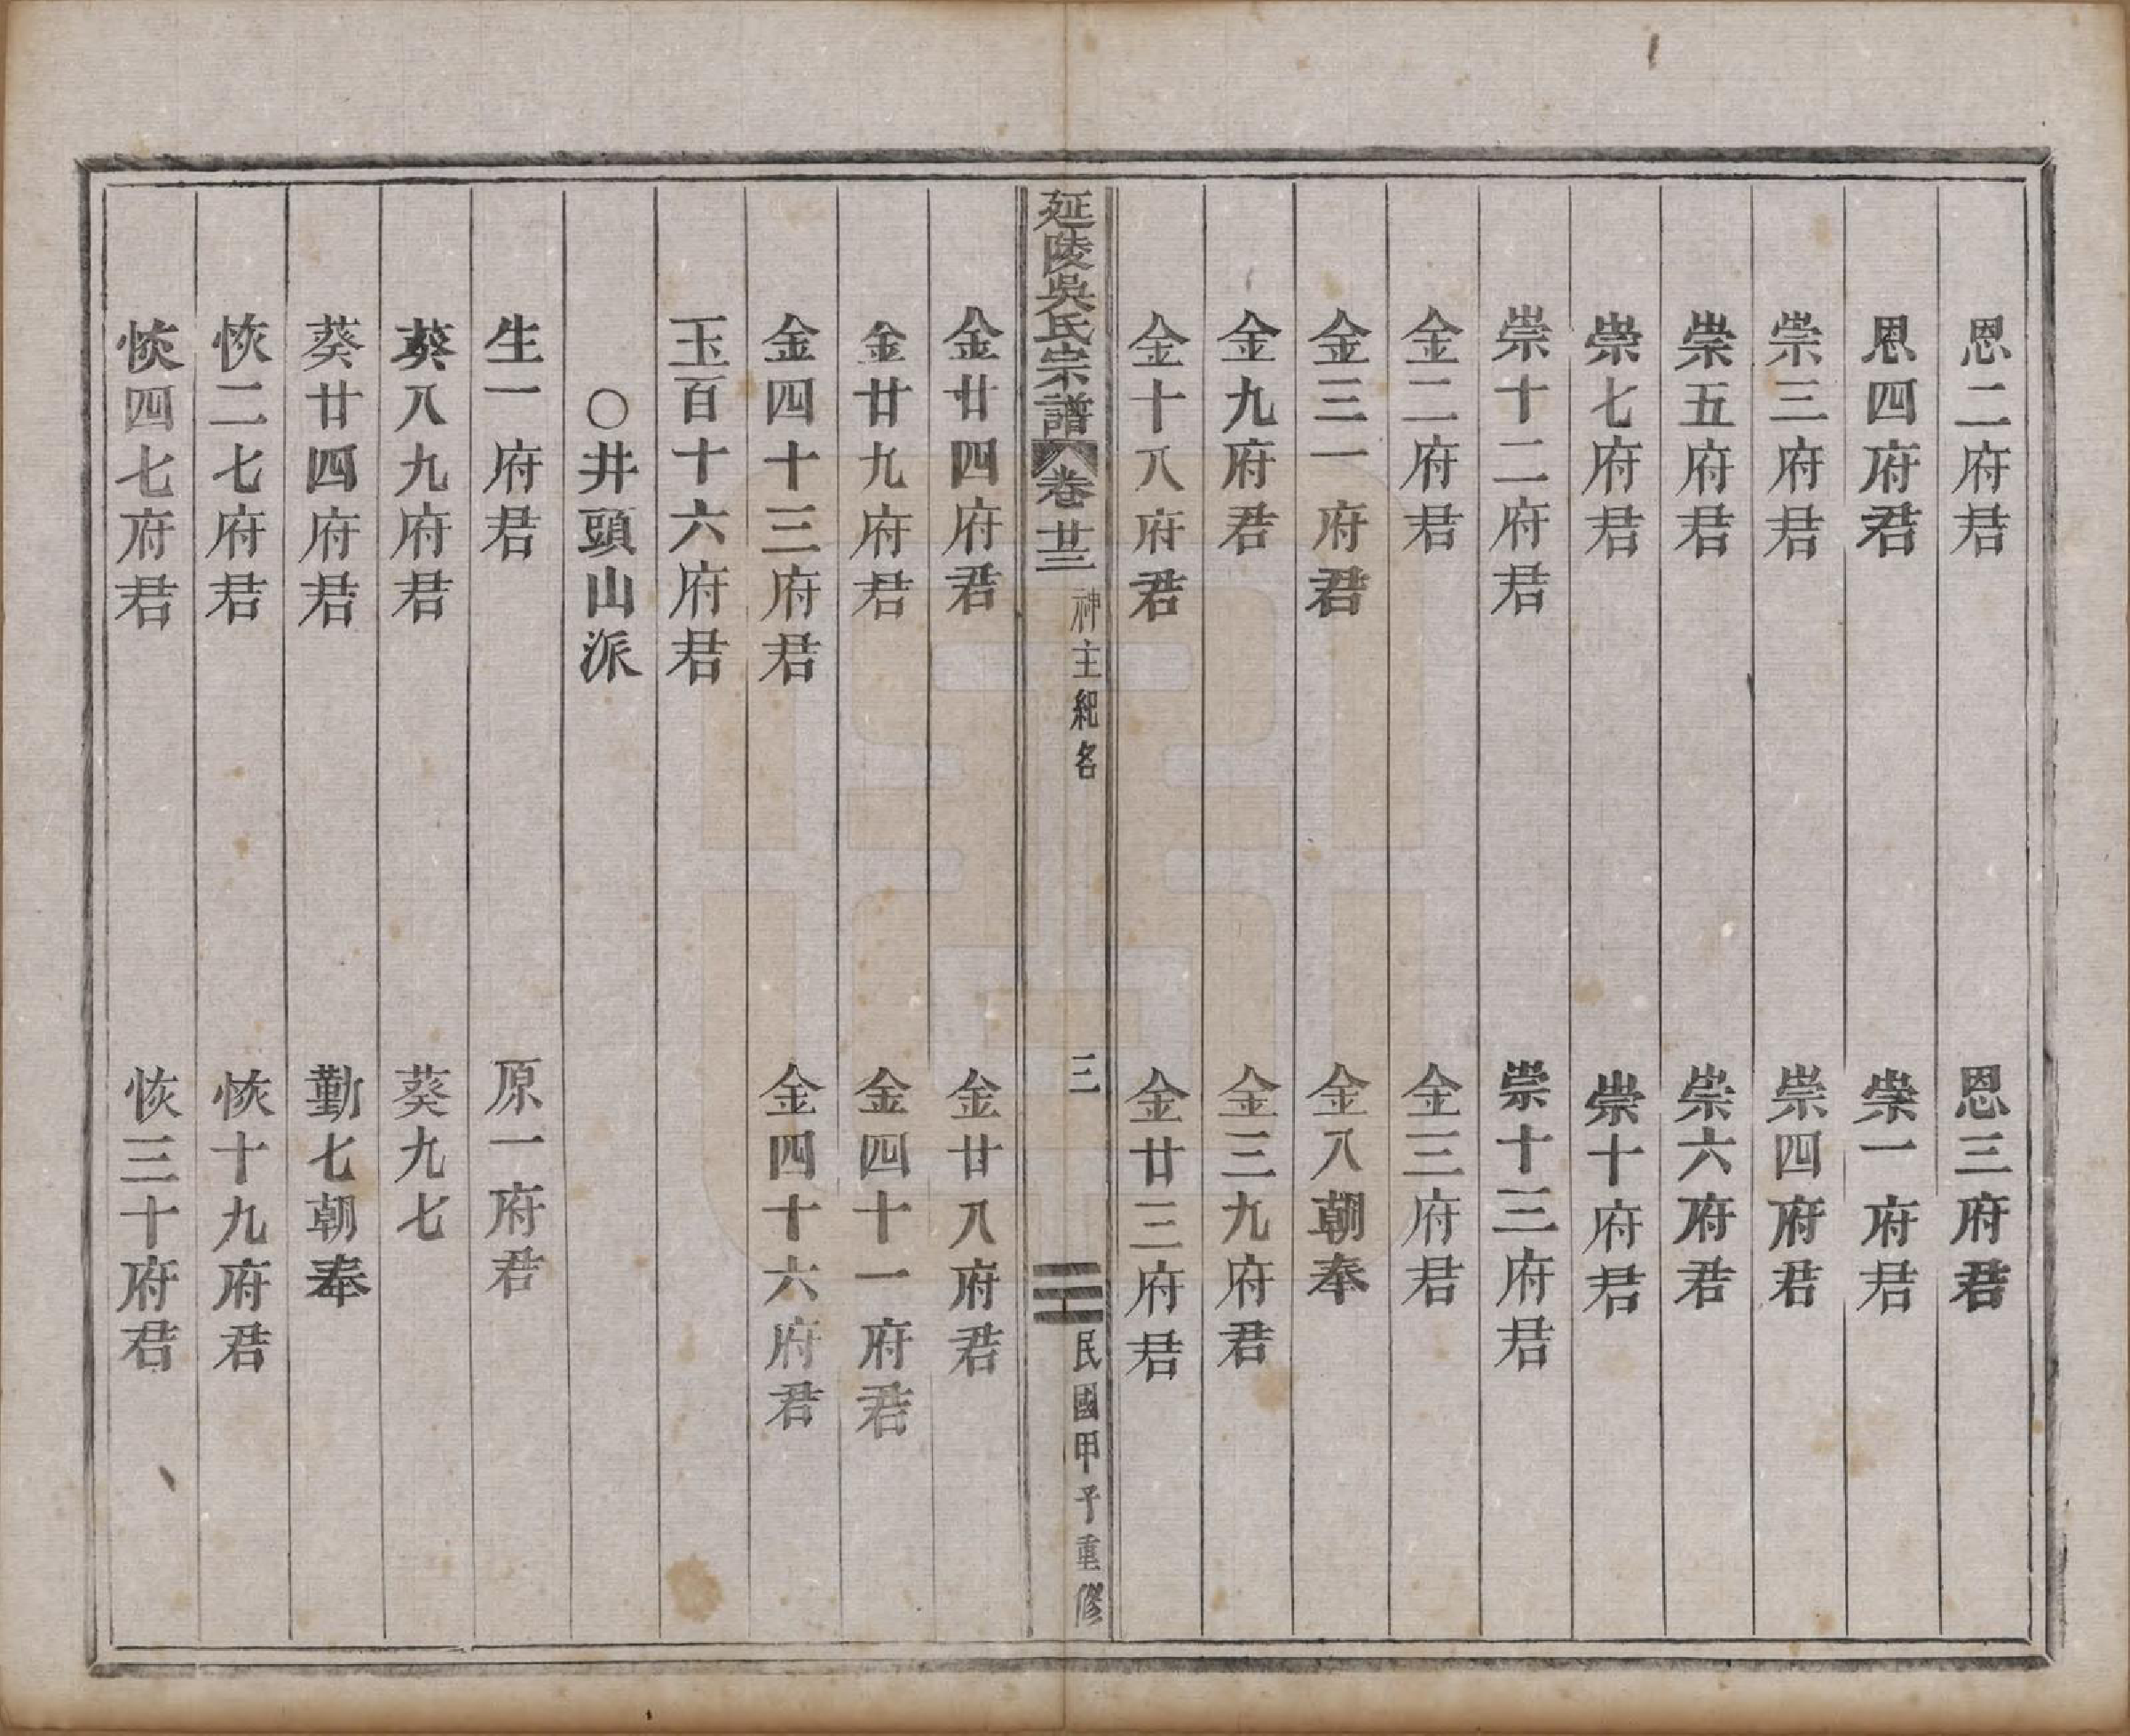 恩二府君　恩三府君
恩四府君　崇一府君
崇三府君　崇四府君
崇五府君　崇六府君
崇七府君　崇十府君
崇十二府君　崇十三府君
金二府君　金三府君
金三一府君　金八朝奉
金九府君　金三九府君
金十八府君　金廿三府君
延陵吳氏宗譜　卷廿三　神主紀名　三　民國甲子重修
金廿四府君　金廿八府君
金廿九府君　金四十一府君
金四十三府君　金四十六府君
玉百十六府君
○井頭山派
生一府君　原一府君
葵八九府君　葵九七
葵廿四府君　勤七朝奉
恢二七府君　恢十九府君
恢四七府君　恢三十府君